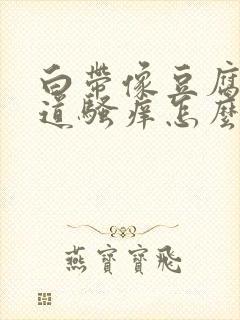 白帶像豆腐
道騷癢怎麼
燕寶寶飛